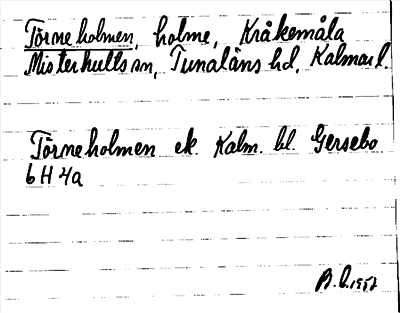 Törneholmen, holme, Kråkemåla
Misterhults sn, Tunaläns hd, Kalmar l.
Törneholmen ek. Kalm. bl. Gersebo
6 H 4a
B. L. 1957